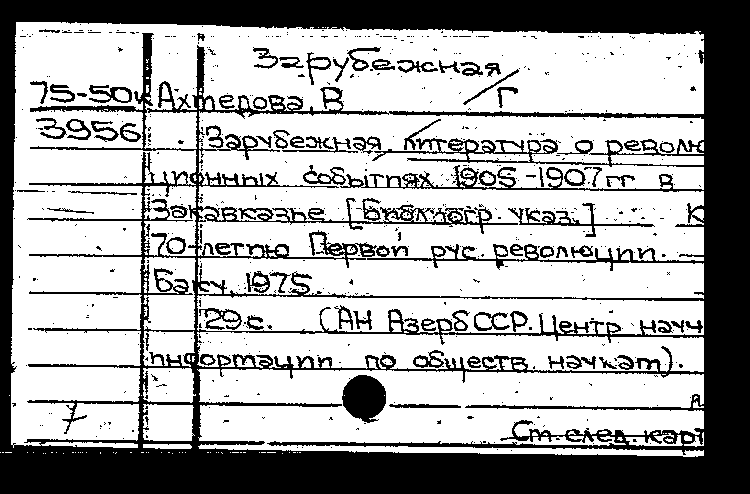 Зарубежная
75-50к Ахмедова, В Г
3956 Зарубежная литература о револю
ционных событиях 1905-1907 гг в
Закавказье [Библиогр. указ.] К
70-летию Первой рус. революции. —
Баку, 1975.
29 с. (АН АзербССР. Центр науч
информации по обществ. наукам).
См след. карт